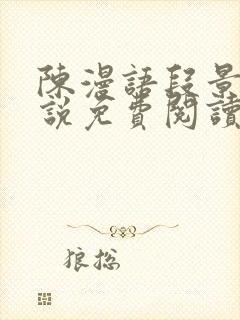 陳漫語段景
說免費閱讀
狼總